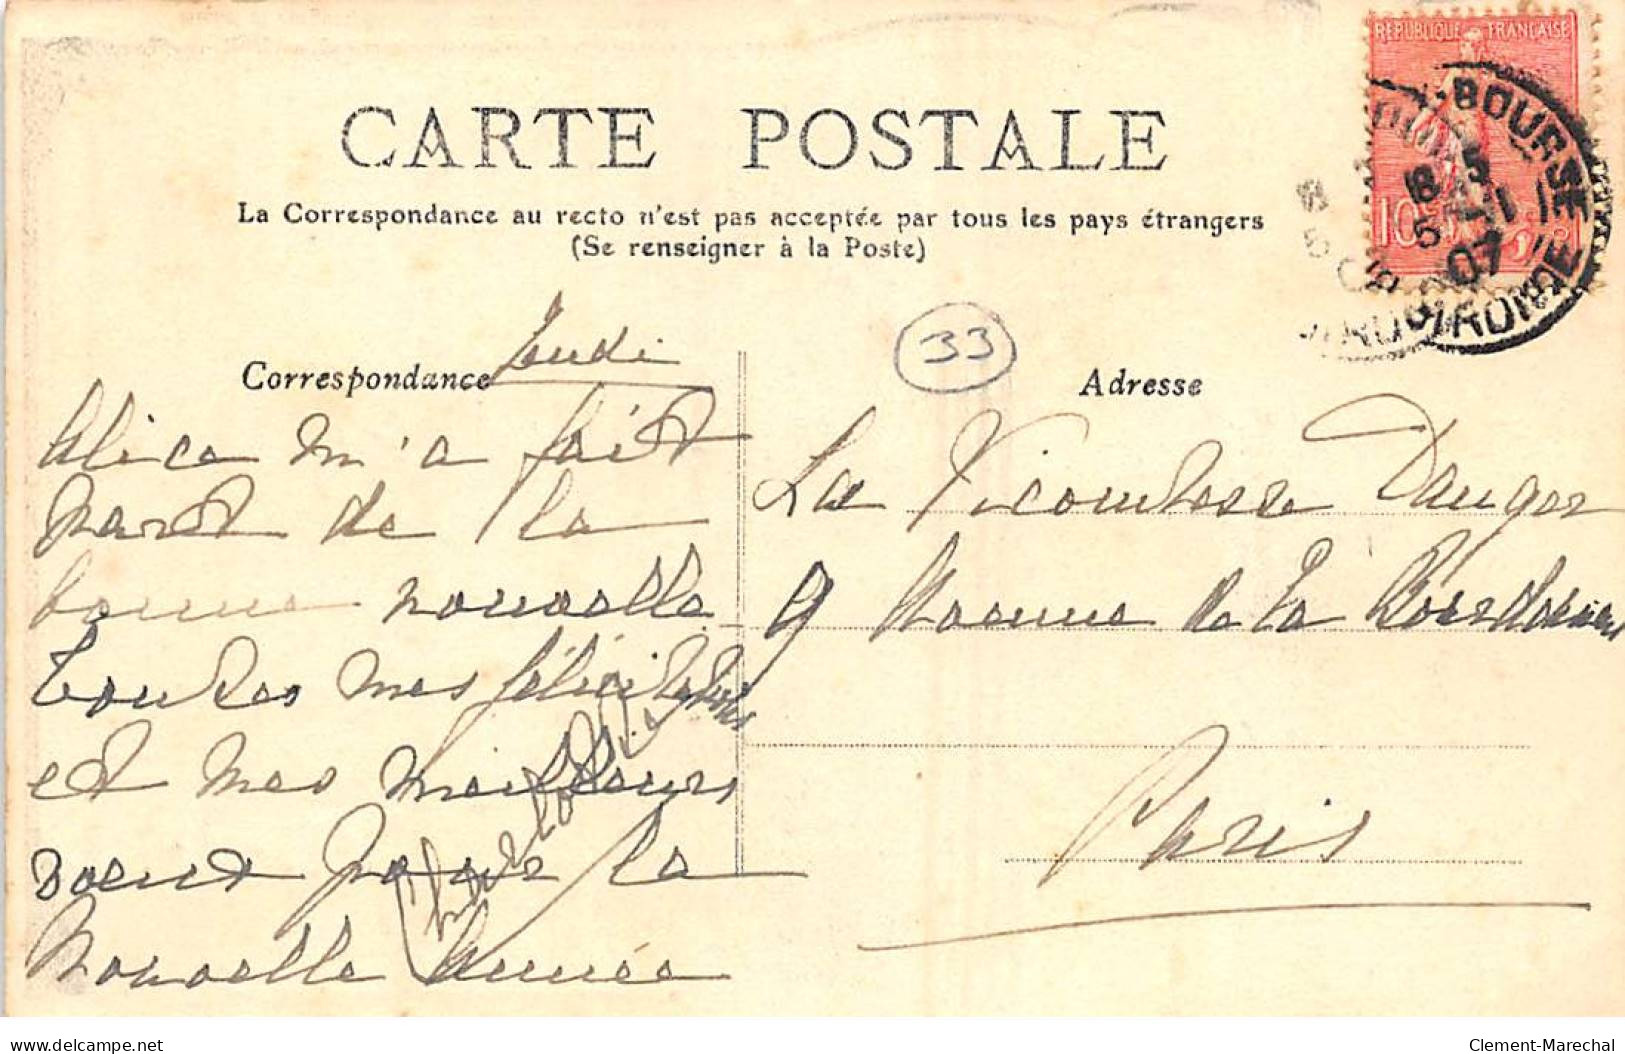 RÉPUBLIQUE FRANÇAISE
10
BOURSE
8 5
5 -1
07
GIRONDE
CARTE POSTALE
La Correspondance au recto n'est pas acceptée par tous les pays étrangers
(Se renseigner à la Poste)
33
Correspondance
Jeudi
Alice m'a fait
part de la
bonne nouvelle
toutes mes félicitations
et mes meilleurs
voeux pour la
Nouvelle année
Adresse
La Vicomtesse Dauger
9 Avenue de La Bourdonnais
Paris
www.delcampe.net
Clement-Marechal